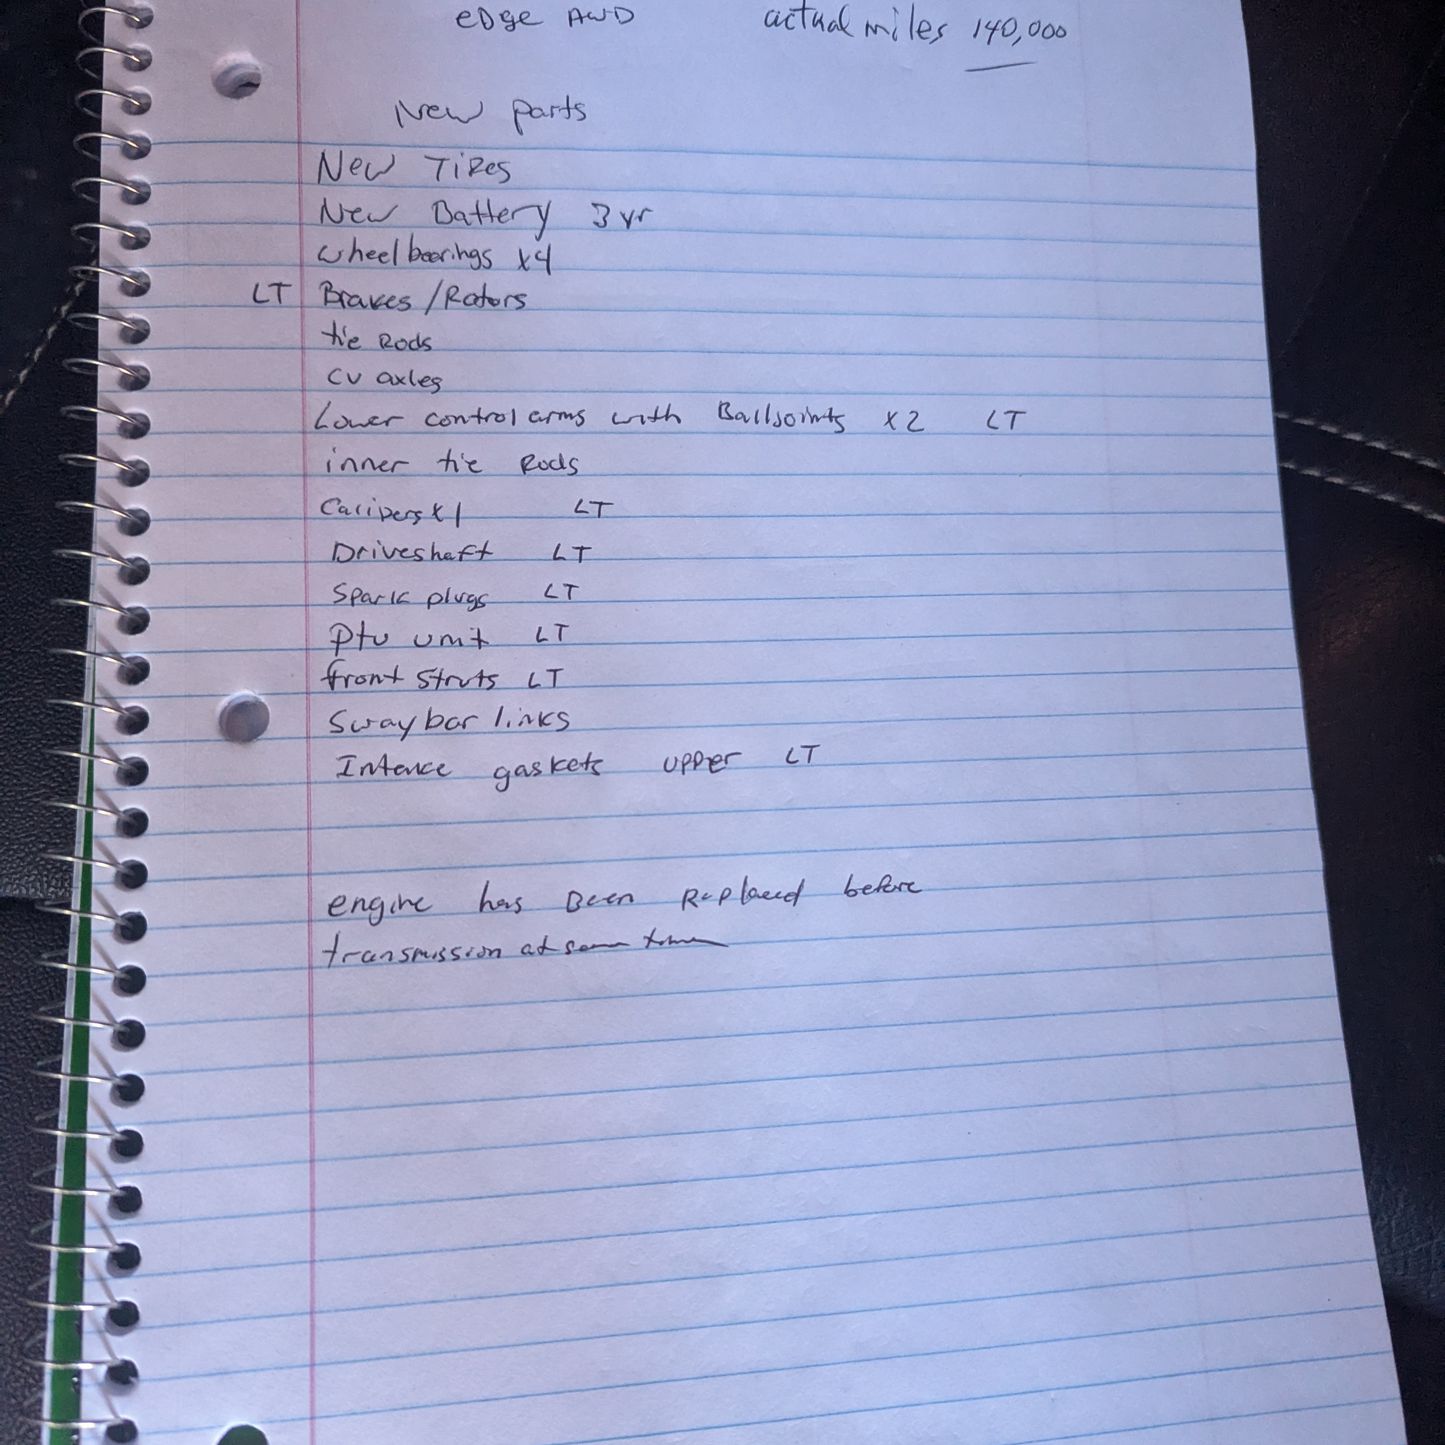 eDge AWD actual miles 140,000
New parts
New Tires
New Battery 3 yr
wheel bearings x4
LT Brakes / Rotors
tie Rods
CV axles
Lower control arms with Balljoints x2 LT
inner tie Rods
Calipers x1 LT
Driveshaft LT
Spark plugs LT
Ptu unit LT
front Struts LT
Sway bar links
Intake gaskets upper LT
engine has Been Replaced before
transmission at same time